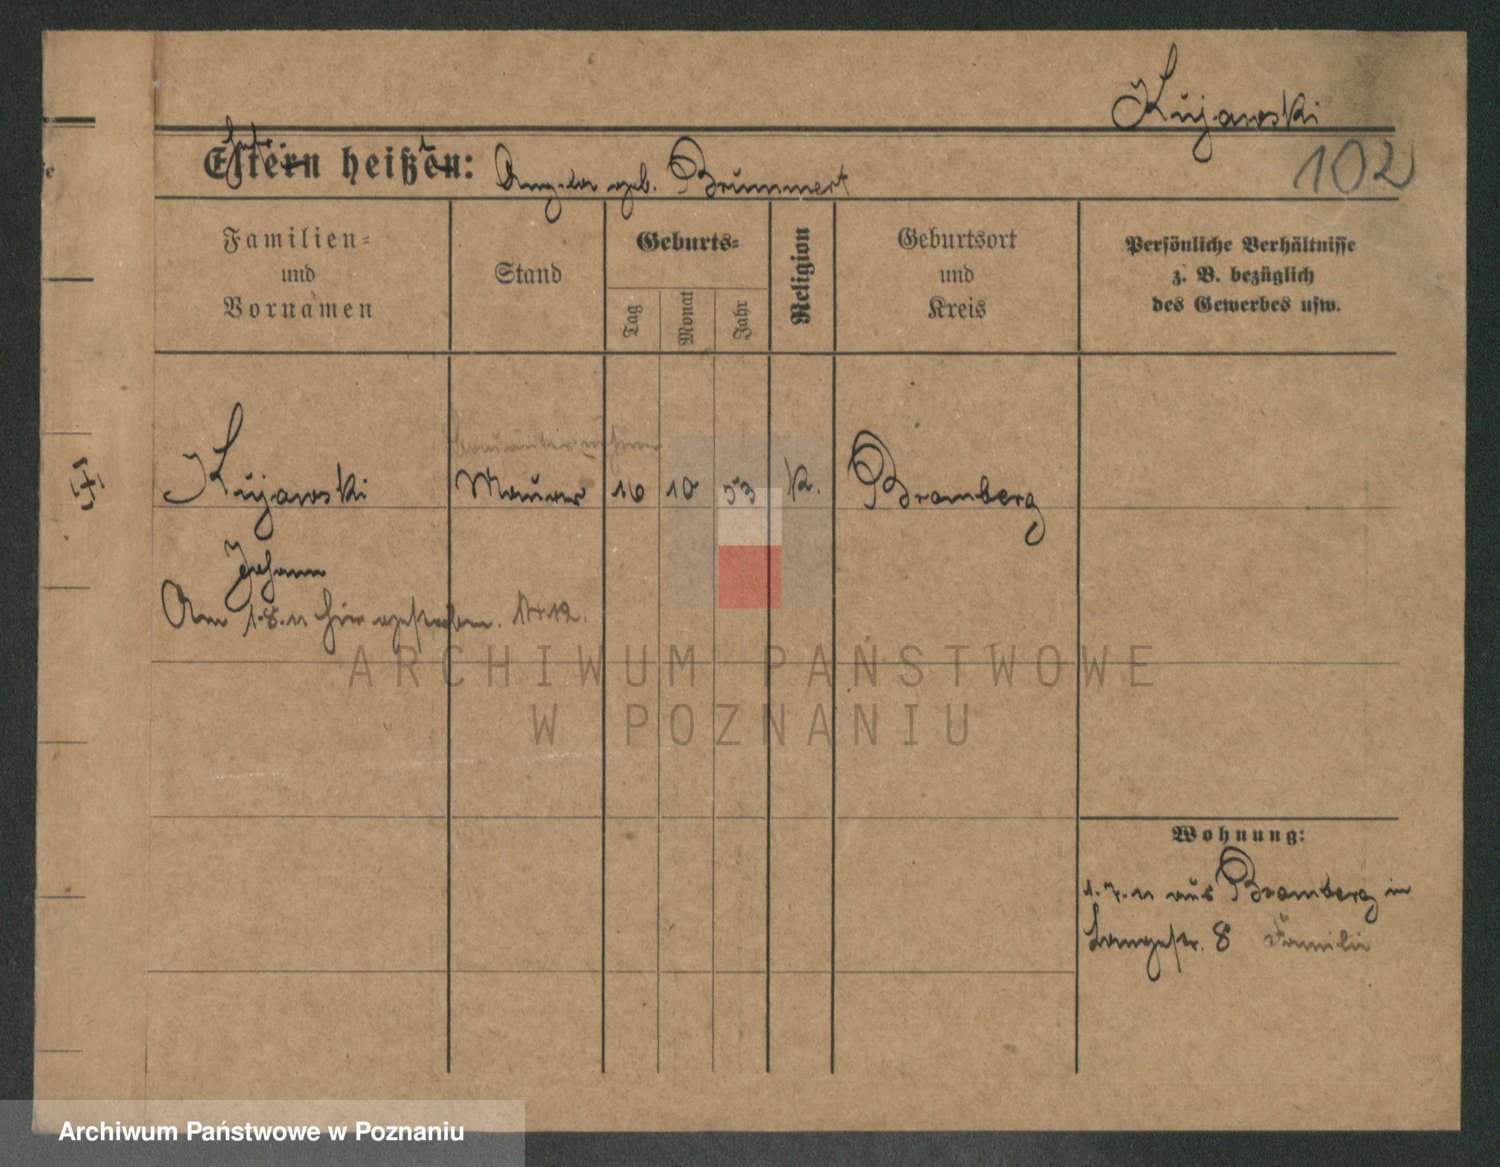 Kujawski
102
Eltern heißen: geb. Brummert
Familien-
und
Vornamen
Stand
Geburts-
Tag
Monat
Jahr
Religion
Geburtsort
und
Kreis
Persönliche Verhältnisse
z. B. bezüglich
des Gewerbes usw.
Kujawski
Maurer
10
53
K.
Bromberg
Johann
Am 1.8.11 hier gestorben.
ARCHIWUM PAŃSTWOWE
W POZNANIU
Wohnung:
1.7.11 aus Bromberg in
Langestr. 8 Familie
Archiwum Państwowe w Poznaniu